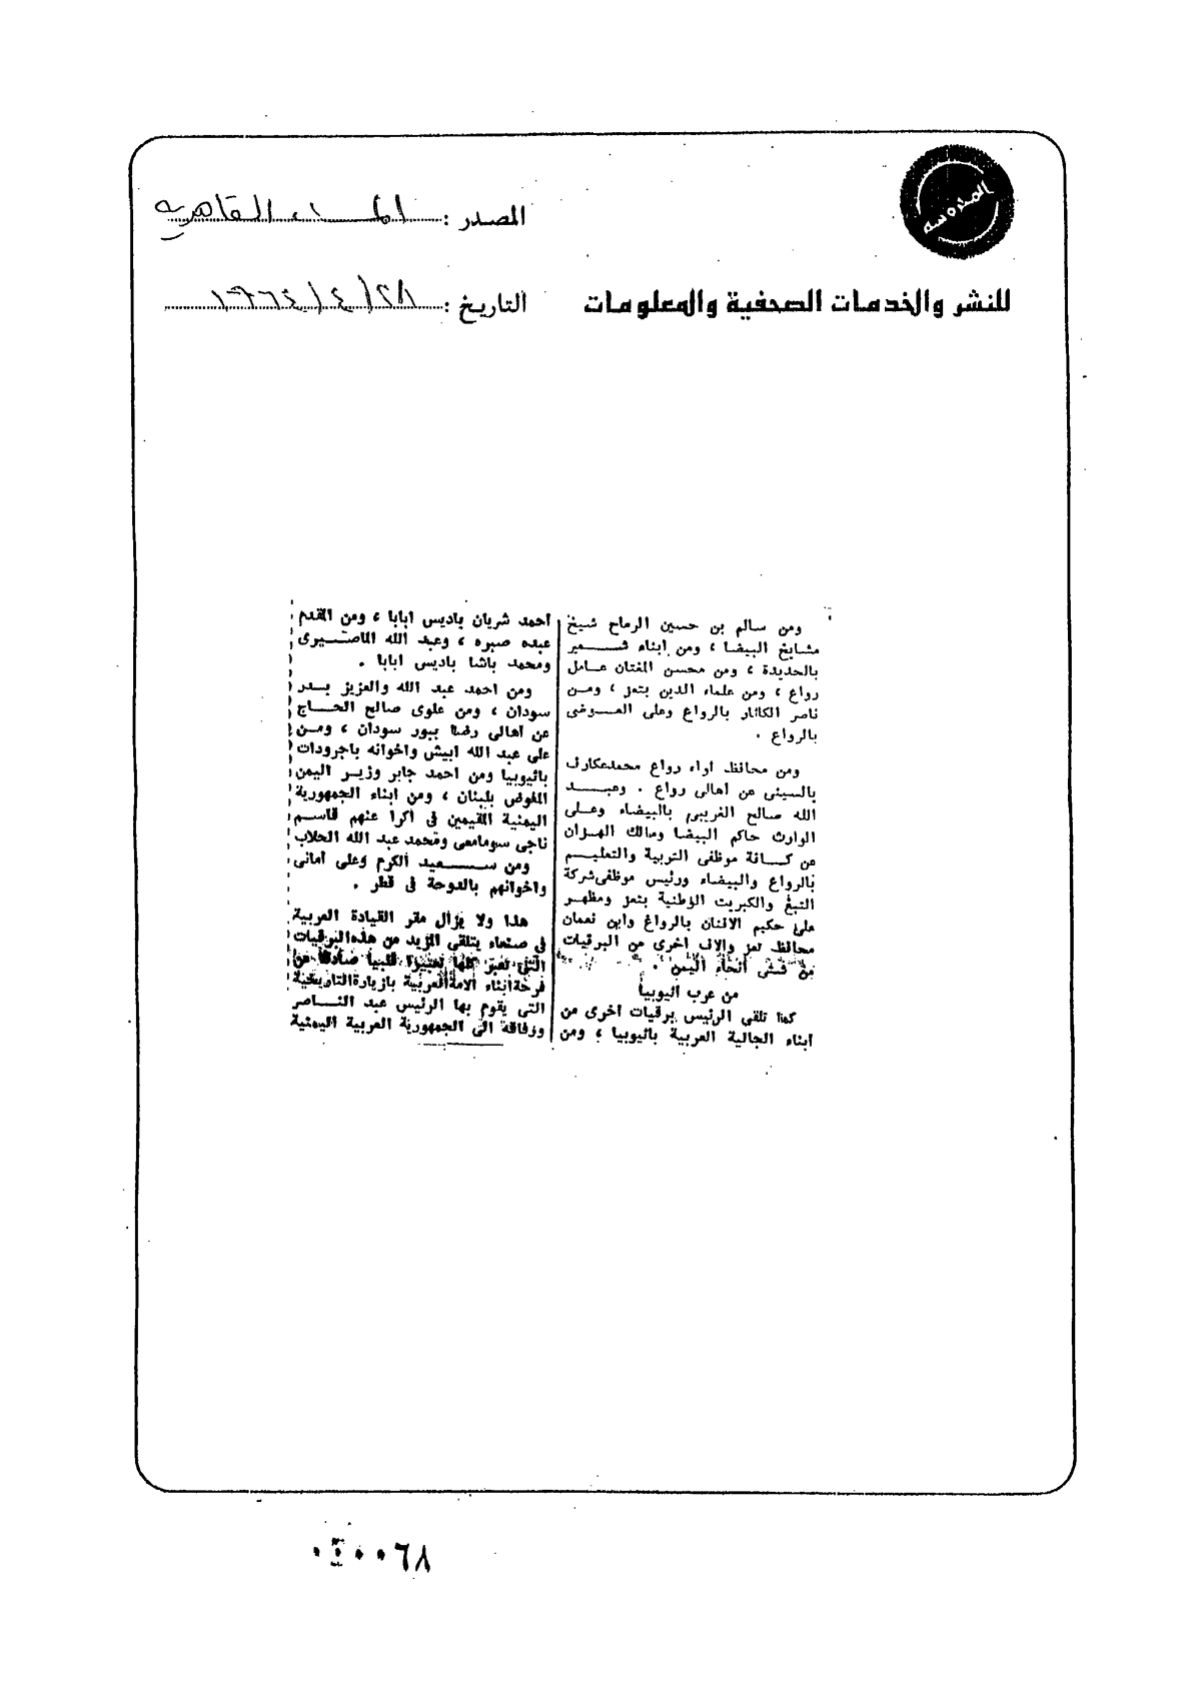 المدوسه
المصدر : المساء القاهرية
للنشر والخدمات الصحفية والمعلومات
التاريخ : ٢٨/٤/١٩٦٤
ومن سالم بن حسين الرماح شيخ
مشايخ البيضا ، ومن ابناء شمير
بالحديدة ، ومن محسن المفتان عامل
رواع ، ومن علماء الدين بتعز ، ومن
ناصر الكائار بالرواع وعلى العوضى
بالرواع .
ومن محافظ اواء رواع محمد عكارف
بالسينى عن اهالى رواع . وعبد
الله صالح الغريبى بالبيضاء وعلى
الوارث حاكم البيضا ومالك الهزان
عن كافة موظفى التربية والتعليم
بالرواع والبيضاء ورئيس موظفى شركة
التبغ والكبريت الوطنية بتعز ومظهر
على حكيم الافنان بالرواغ وابن نعمان
محافظ تعز والاف اخرى من البرقيات
من شتى أنحاء اليمن .
من عرب اثيوبيا
كما تلقى الرئيس برقيات اخرى من
ابناء الجالية العربية باثيوبيا ، ومن
احمد شريان باديس ابابا ، ومن المقدم
عبده صبره ، وعبد الله
ومحمد باشا باديس ابابا .
ومن احمد عبد الله والعزيز بدر
سودان ، ومن علوى صالح الحاج
عن اهالى رضا ببور سودان ، ومن
على عبد الله ابيش واخوانه باجرودات
باثيوبيا ومن احمد جابر وزير اليمن
المفوض بلبنان ، ومن ابناء الجمهورية
اليمنية المقيمين فى اكرا عنهم قاسم
ناجى سومامعى ومحمد عبد الله الحلاب
ومن سعيد الكرم وعلى امانى
واخوانهم بالدوحة فى قطر .
هذا ولا يزال مقر القيادة العربية
فى صنعاء يتلقى المزيد من هذه البرقيات
التى تعبر كلها تعبيرا قلبيا صادقا عن
فرحة ابناء الامة العربية بازيارة التاريخية
التى يقوم بها الرئيس عبد الناصر
ورفاقه الى الجمهورية العربية اليمنية
٠٤٠٠٦٨